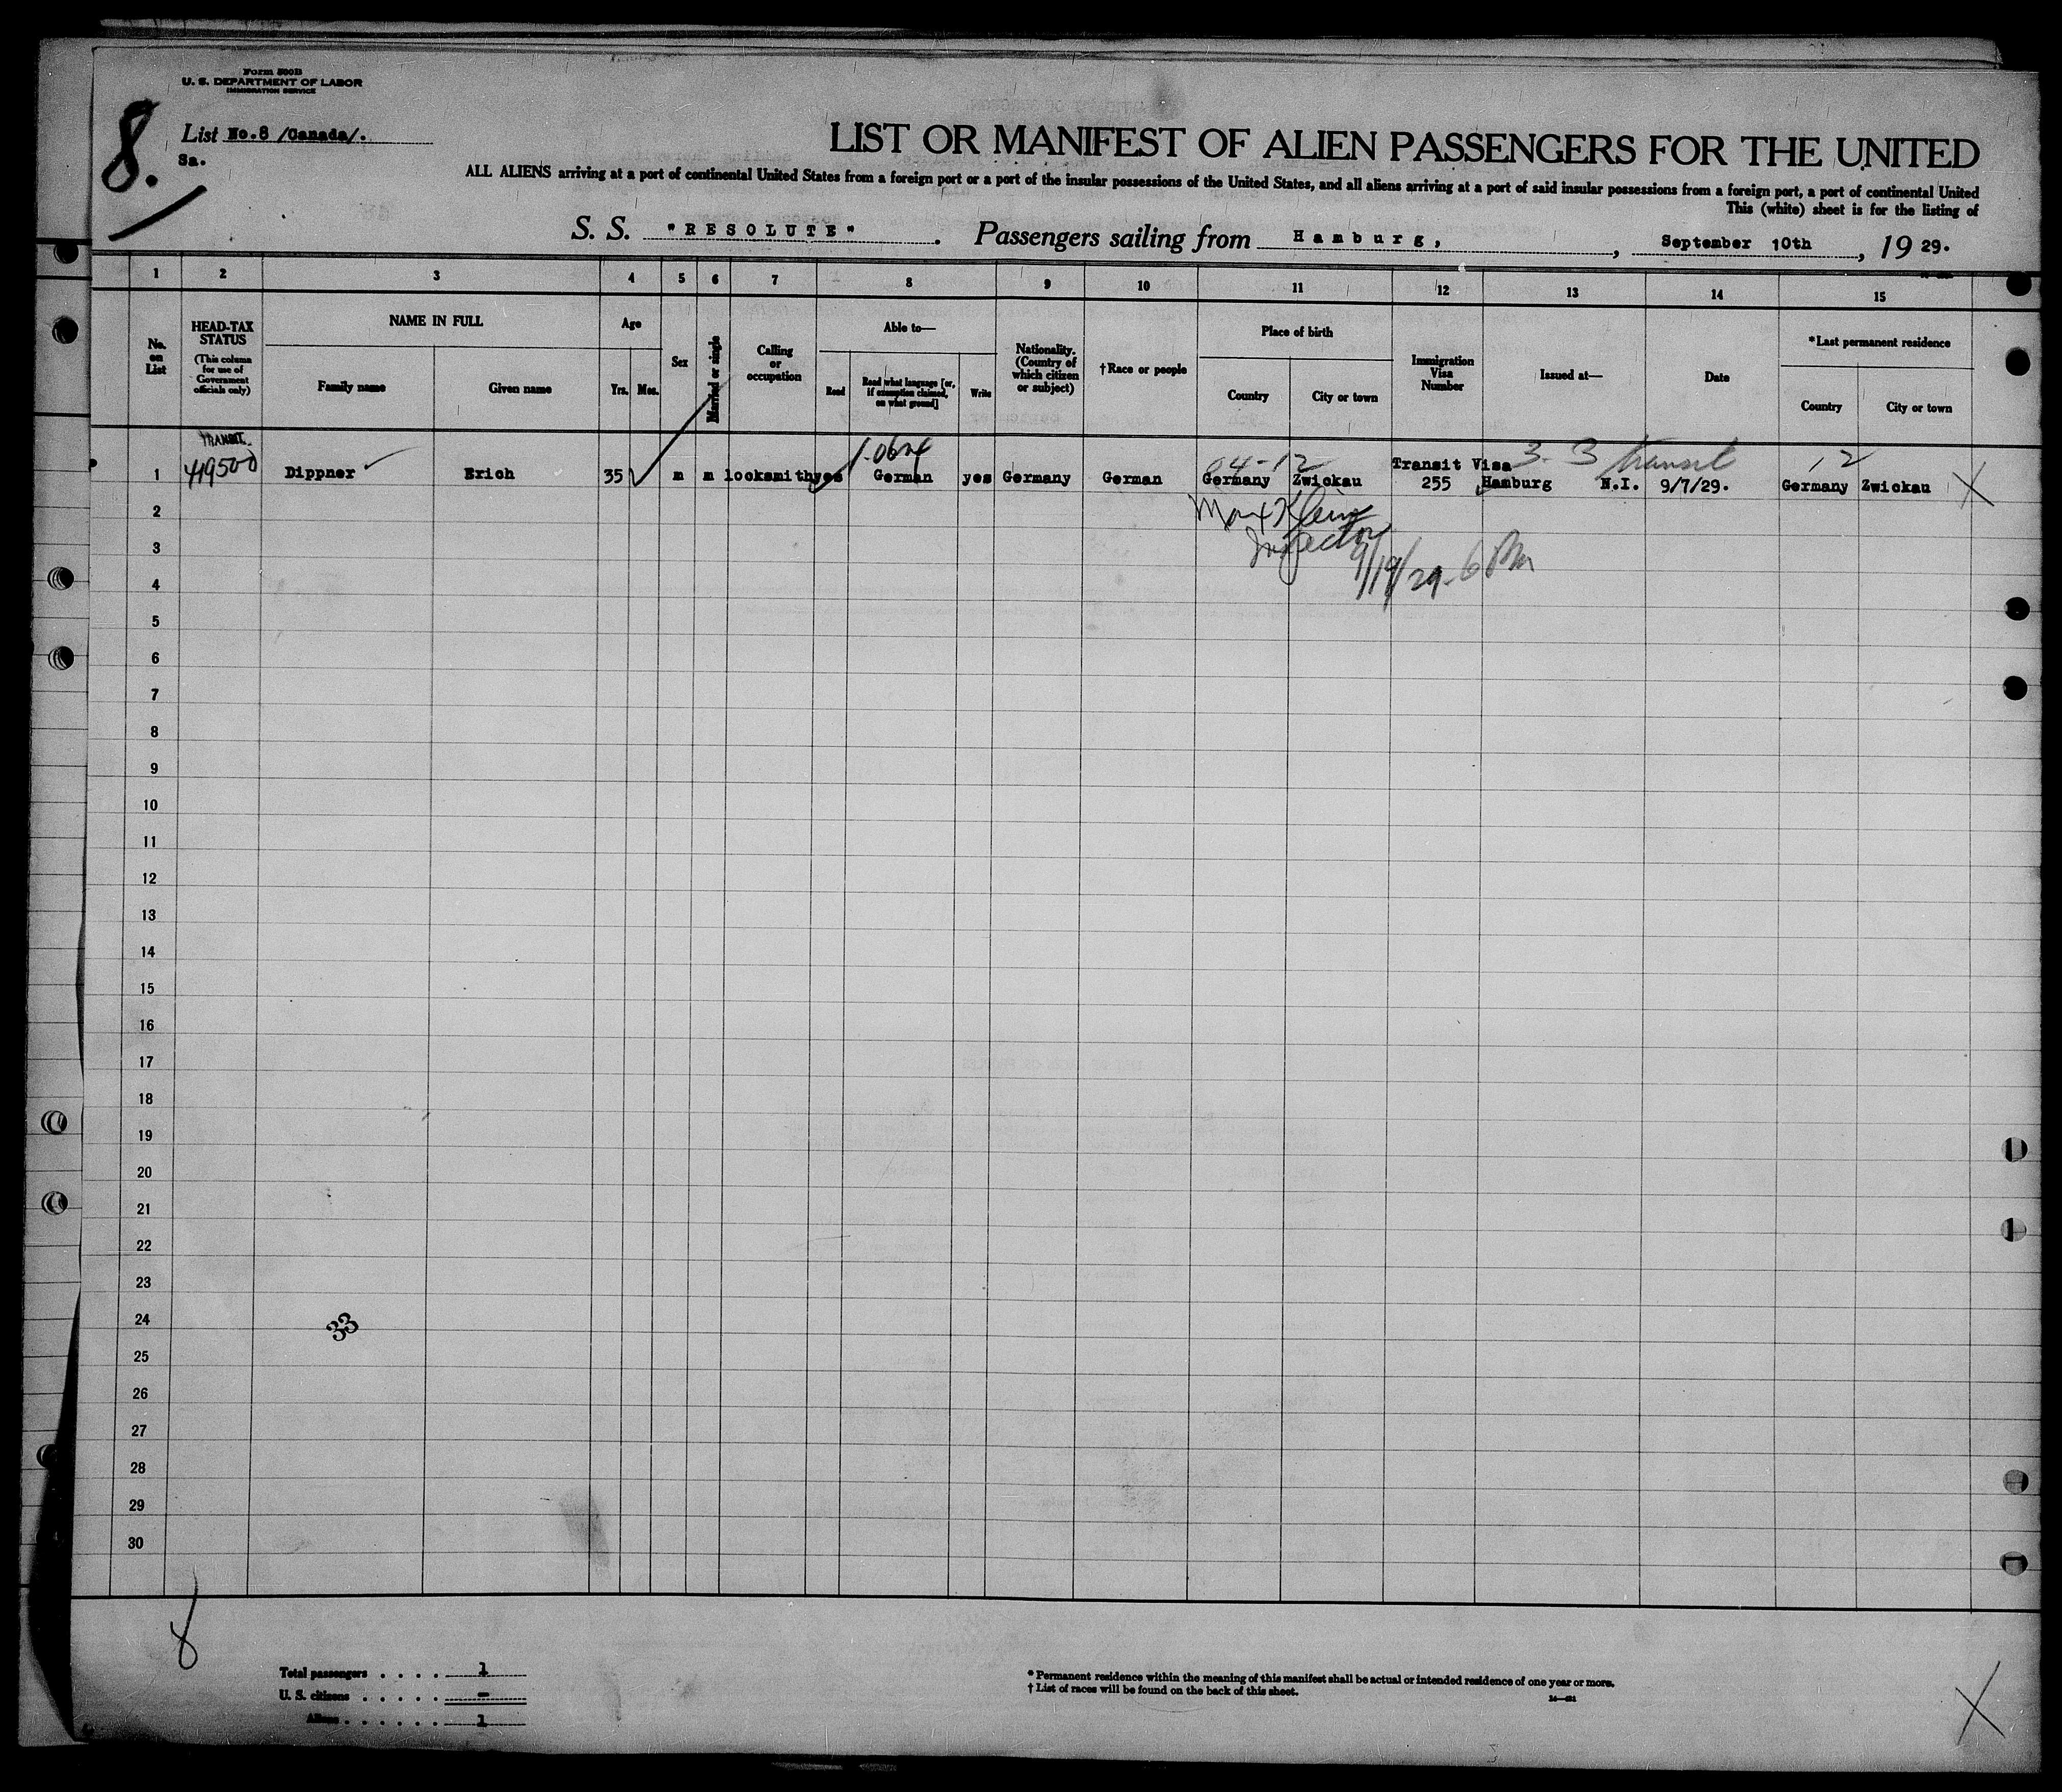 Form 500B
U. S. DEPARTMENT OF LABOR
IMMIGRATION SERVICE
8.
List No.8 /Canada/.
Sa.
LIST OR MANIFEST OF ALIEN PASSENGERS FOR THE UNITED
ALL ALIENS arriving at a port of continental United States from a foreign port or a port of the insular possessions of the United States, and all aliens arriving at a port of said insular possessions from a foreign port, a port of continental United
This (white) sheet is for the listing of
S. S. "RESOLUTE". Passengers sailing from Hamburg, , September 10th , 19 29.
1 2 3 4 5 6 7 8 9 10 11 12 13 14 15
No. on List
HEAD-TAX STATUS
(This column for use of Government officials only)
NAME IN FULL
Family name Given name
Age
Yrs. Mos.
Sex
Married or single
Calling or occupation
Able to—
Read
Read what language [or, if exemption claimed, on what ground]
Write
Nationality. (Country of which citizen or subject)
†Race or people
Place of birth
Country City or town
Immigration Visa Number
Issued at—
Date
*Last permanent residence
Country City or town
TRANSIT. 04-12 Transit Visa 3-3 transit 12
1 Dippner Erich 35 m m locksmith yes German yes Germany German Germany Zwickau 255 Hamburg N.I. 9/7/29. Germany Zwickau X
Max Klein
Inspector
9/19/29-6 Pm
2
3
4
5
6
7
8
9
10
11
12
13
14
15
16
17
18
19
20
21
22
23
24
25
26
27
28
29
30
33
8
Total passengers . . . . 1
U. S. citizens . . . . . -
Aliens . . . . . . 1
* Permanent residence within the meaning of this manifest shall be actual or intended residence of one year or more.
† List of races will be found on the back of this sheet.
X